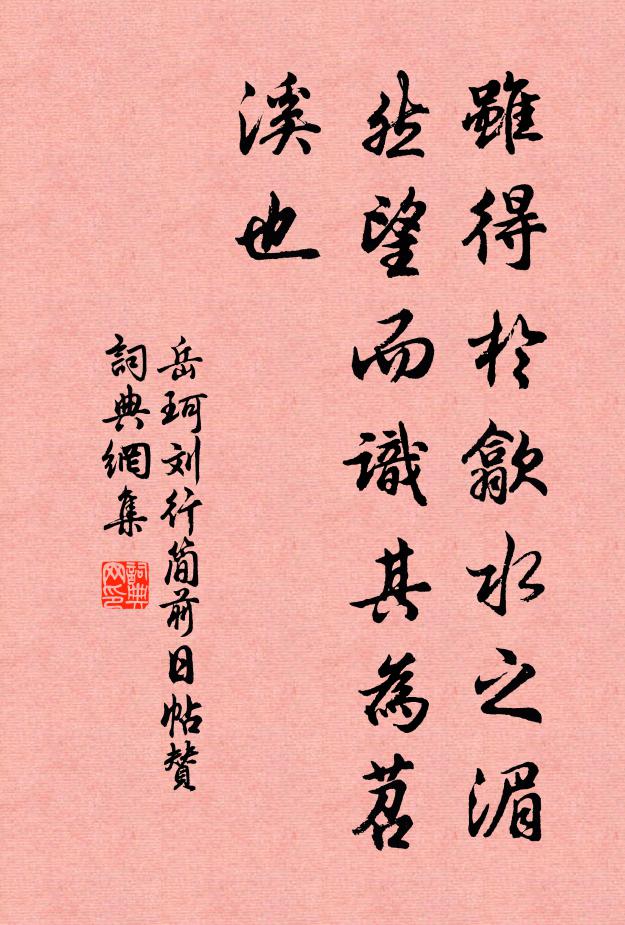 雖得於歙水之湄
然望而識其為苕
溪也
岳珂刘行简前日帖赞
詞典網集
詞典网印